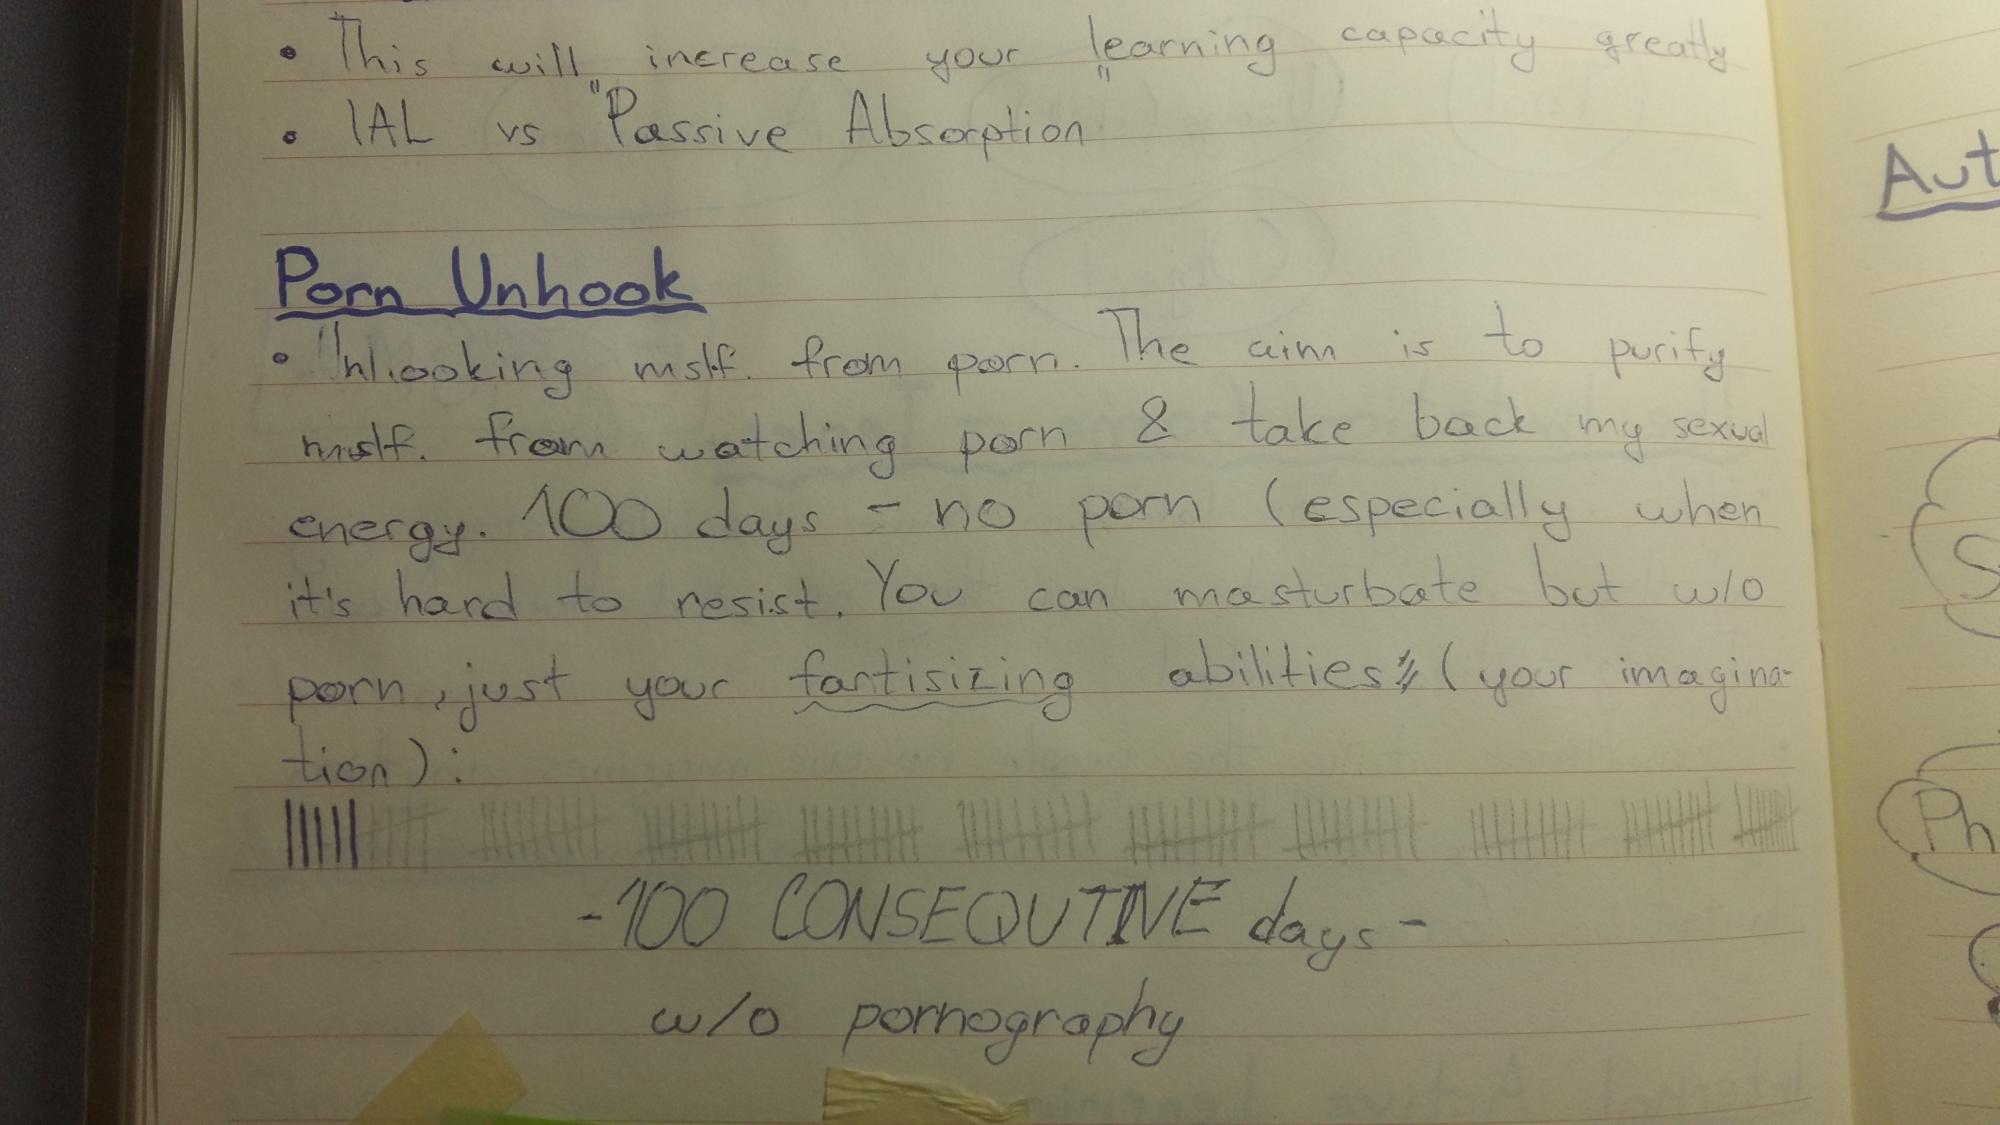 • This will increase your "learning capacity greatly
• IAL vs "Passive Absorption"
Aut
Porn Unhook
• Unhooking mslf. from porn. The aim is to purify
mslf. from watching porn & take back my sexual
energy. 100 days - no porn (especially when
it's hard to resist. You can masturbate but w/o
porn, just your fantisizing abilities (your imagina-
tion):
-100 CONSEQUTIVE days-
w/o pornography
S
Ph